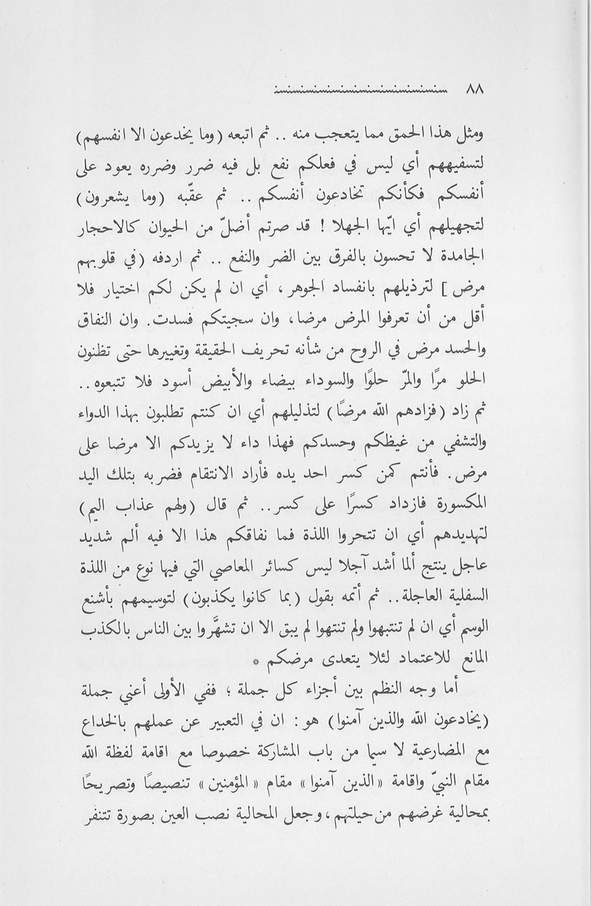 ٨٨
ومثل هذا الحمق مما يتعجب منه .. ثم اتبعه (وما يخدعون الا انفسهم)
لتسفيههم أي ليس في فعلكم نفع بل فيه ضرر وضرره يعود على
أنفسكم فكأنكم تخادعون أنفسكم .. ثم عقّبه (وما يشعرون)
لتجهيلهم أي ايّها الجهلا ! قد صرتم أضلّ من الحيوان كالاحجار
الجامدة لا تحسون بالفرق بين الضر والنفع .. ثم اردفه (في قلوبهم
مرض] لترذيلهم بانفساد الجوهر ، أي ان لم يكن لكم اختيار فلا
أقل من أن تعرفوا المرض مرضا ، وان سجيتكم فسدت. وان النفاق
والحسد مرض في الروح من شأنه تحريف الحقيقة وتغييرها حتى تظنون
الحلو مرًا والمرّ حلوًا والسوداء بيضاء والأبيض أسود فلا تتبعوه..
ثم زاد (فزادهم الله مرضًا) لتذليلهم أي ان كنتم تطلبون بهذا الدواء
والتشفي من غيظكم وحسدكم فهذا داء لا يزيدكم الا مرضا على
مرض. فأنتم كمن كسر احد يده فأراد الانتقام فضربه بتلك اليد
المكسورة فازداد كسرًا على كسر .. ثم قال (ولهم عذاب اليم)
لتهديدهم أي ان تتحروا اللذة فما نفاقكم هذا الا فيه ألم شديد
عاجل ينتج ألما أشد آجلا ليس كسائر المعاصي التي فيها نوع من اللذة
السفلية العاجلة .. ثم أتمه بقول (بما كانوا يكذبون) لتوسيمهم بأشنع
الوسم أي ان لم تنتبهوا ولم تنتهوا لم يبق الا ان تشهَّروا بين الناس بالكذب
المانع للاعتماد لئلا يتعدى مرضكم *
أما وجه النظم بين أجزاء كل جملة ؛ ففي الأولى أعني جملة
(يخادعون الله والذين آمنوا) هو : ان في التعبير عن عملهم بالخداع
مع المضارعية لا سيما من باب المشاركة خصوصا مع اقامة لفظة الله
مقام النبيّ واقامة «الذين آمنوا» مقام «المؤمنين» تنصيصًا وتصريحًا
بمحالية غرضهم من حيلتهم ، وجعل المحالية نصب العين بصورة تتنفر